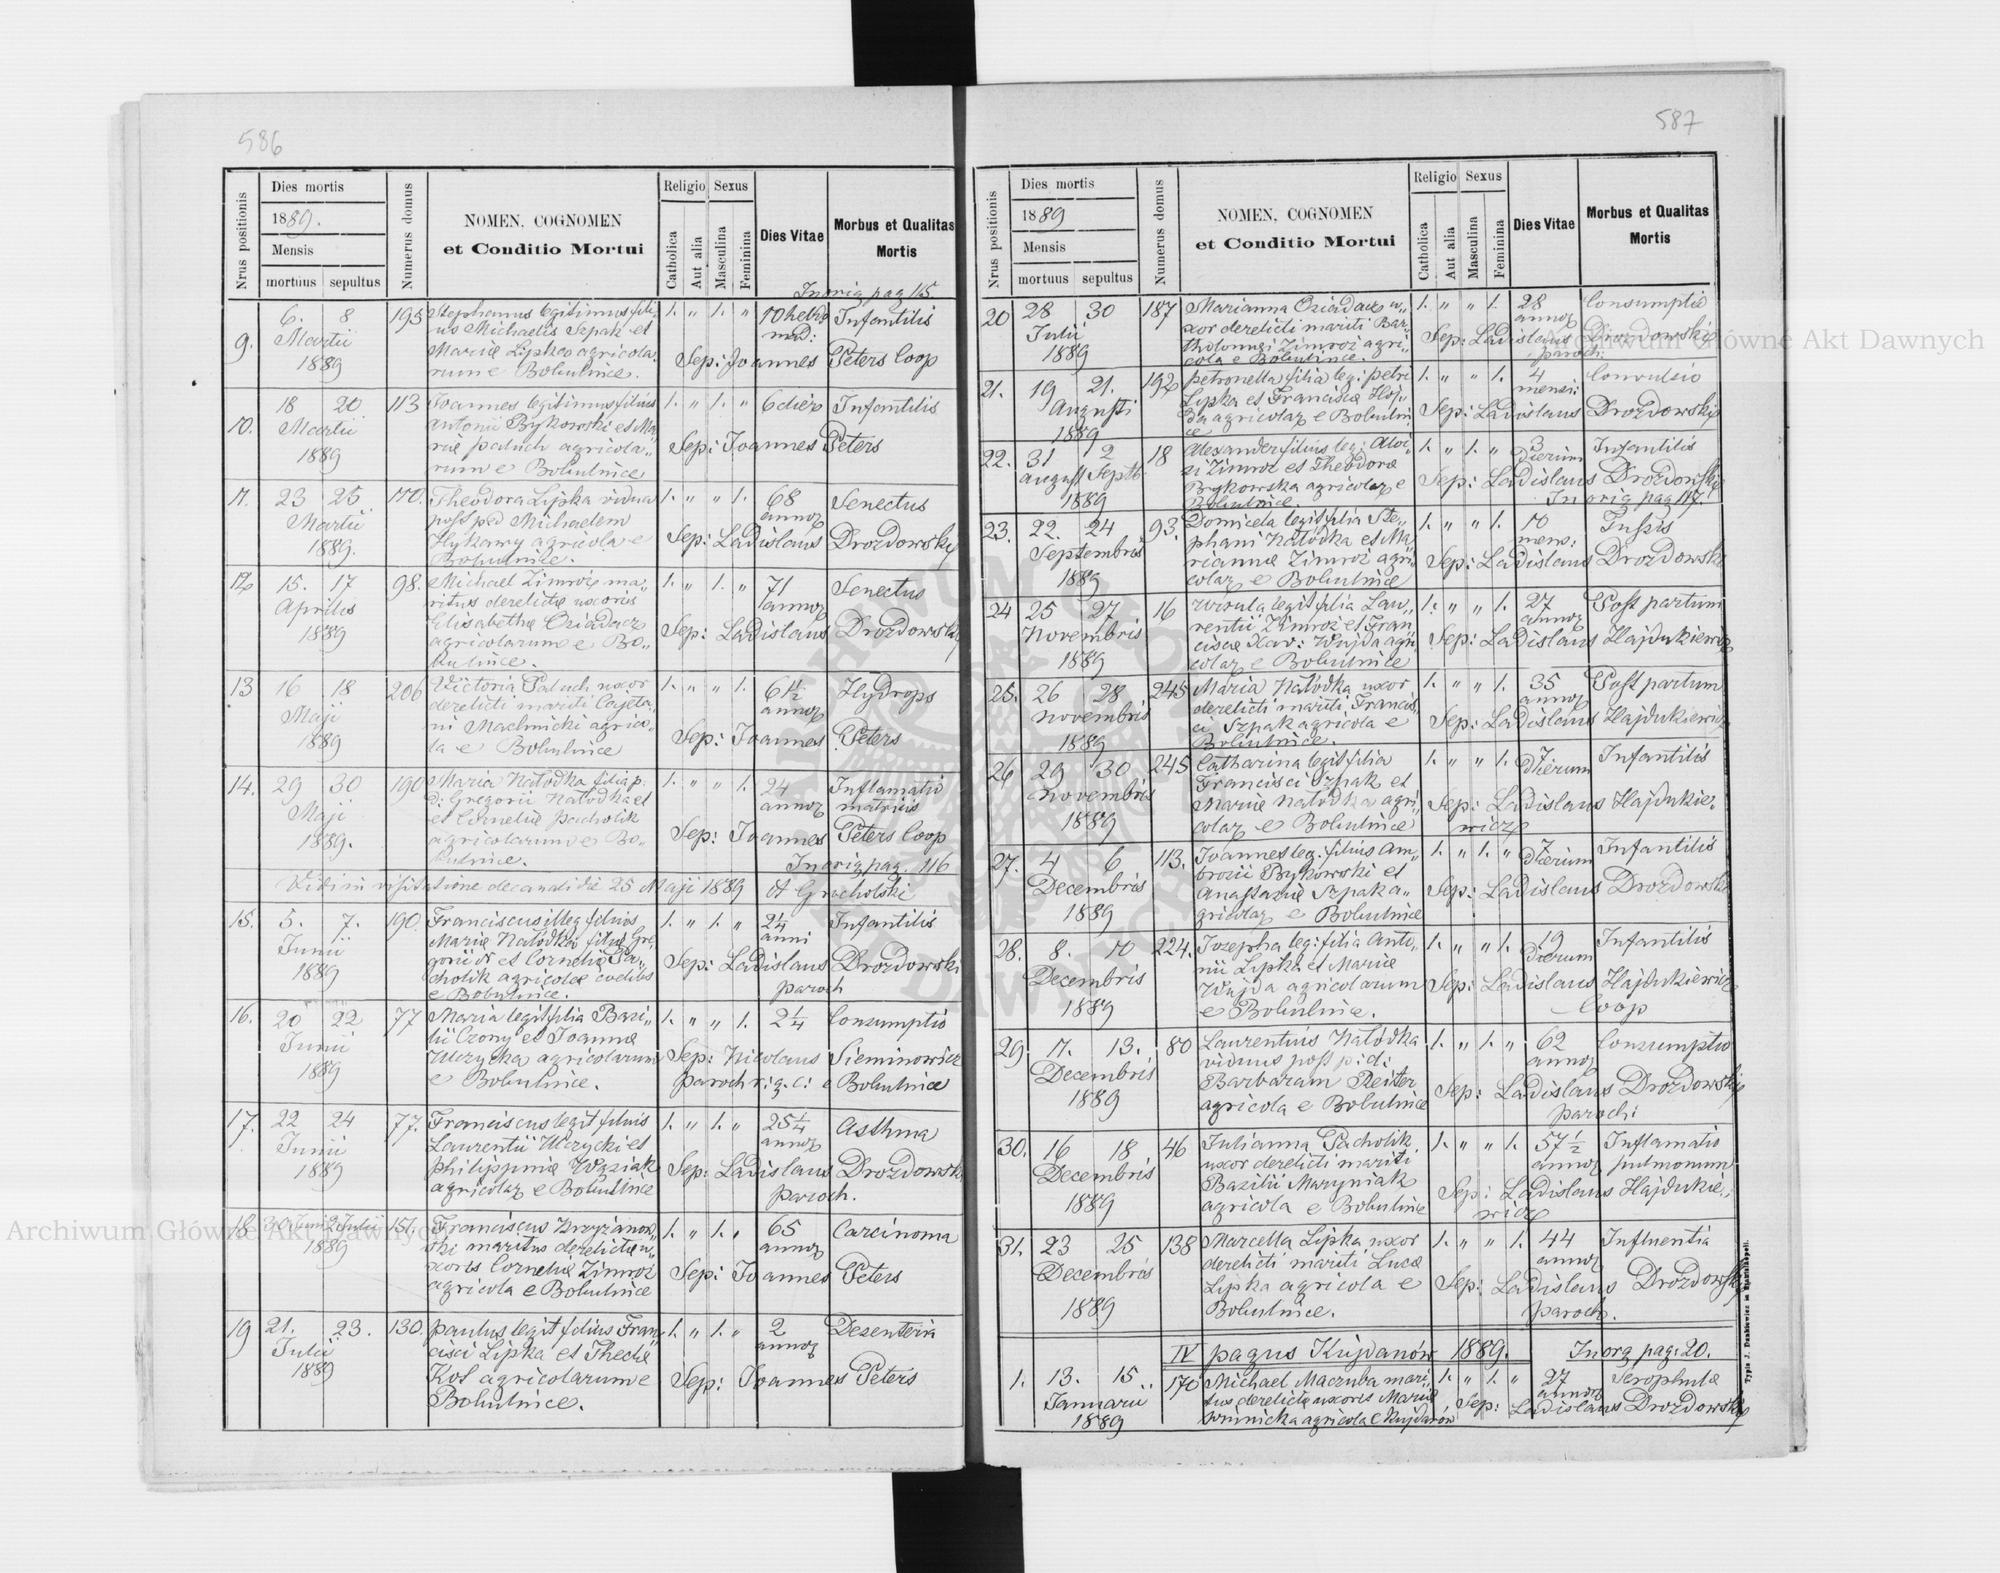 586
Nrus positionis
Dies mortis
1889.
Mensis
mortuus sepultus
Numerus domus
NOMEN, COGNOMEN
et Conditio Mortui
Religio Sexus
Catholica Aut alia Masculina Feminina
Dies Vitae
Morbus et Qualitas
Mortis
In orig pag 115
9. 6. 8 Martii 1889 195
Stephanus legitimus fili„
us Michaelis Szpak et
Mariæ Lipka agricola„
rum e Bobulince.
1. „ 1. „ 10 hebdomad: Infantilis
Sep: Joannes Peters Coop
10. 18 20 Martii 1889 113
Joannes legitimus filius
Antonii Bykowski et Ma„
riæ Paluch agricola„
rum e Bobulince
1. „ 1. „ 6 dier Infantilis
Sep: Joannes Peters
11. 23 25 Martii 1889. 170.
Theodora Lipka vidua
post p d Michaelem
agricola e
Bobulince.
1. „ „ 1. 68 annor Senectus
Sep: Ladislaus Drozdowski
12 15. 17 Aprilis 1889 98.
Michael Zimroz ma„
ritus derelictæ uxoris
Elisabethæ Osiadacz
agricolarum e Bo„
bulince.
1. „ 1. „ 71 annor Senectus
Sep: Ladislaus Drozdowski
13 16 18 Maji 1889 206
Victoria Paluch uxor
derelicti mariti Cajeta„
ni Machnicki agrico„
la e Bobulince
1. „ „ 1. 61½ annor Hydrops
Sep: Joannes Peters
14. 29 30 Maji 1889. 190
Maria Natodka filia p.
d: Gregorii Natodka et
et Corneliæ Pacholik
agricolarum e Bo„
bulince.
1. „ „ 1. 24 annor Inflamatio
matricis
Sep: Joannes Peters Coop
In orig pag. 116
Vidi in visitatione decanali die 25 Maji 1889 A Gracholski
15. 5. 7. Junii 1889 190
Franciscus illeg filius
Mariæ Natodka filiæ Gre„
gorii N et Corneliæ Pa„
cholik agricolæ
e Bobulince.
1. „ 1. „ 2¼ anni Infantilis
Sep: Ladislaus Drozdowski
paroch
16. 20 22 Junii 1889 77
Maria legit filia Basi„
lii Czony et Joannæ
Uczycka agricolarum
e Bobulince.
1. „ „ 1. 2¼ Consumptio
Sep: Nicolaus Sieminowicz
paroch r: g. c: e Bobulince
17. 22 24 Junii 1889 77.
Franciscus legit filius
Laurentii Uczycki et
Philippinæ Woźniak
agricolar e Bobulince
1. „ 1. „ 25¼ annor Asthma
Sep: Ladislaus Drozdowski
paroch.
18 30 Junii 2 Julii 1889 151.
Franciscus Krzyżanow„
ski maritus derelictæ u„
xoris Corneliæ Zimroz
agricola e Bobulince
1. „ 1. „ 65 annor Carcinoma
Sep: Joannes Peters
19 21. 23. Julii 1889 130.
Paulus legit filius Fran„
cisci Lipka et Theclæ
Kot agricolarum e
Bobulince.
1. „ 1. „ 2 annor Desenteria
Sep: Joannes Peters
587
Nrus positionis
Dies mortis
1889
Mensis
mortuus sepultus
Numerus domus
NOMEN, COGNOMEN
et Conditio Mortui
Religio Sexus
Catholica Aut alia Masculina Feminina
Dies Vitae
Morbus et Qualitas
Mortis
20 28 30 Julii 1889 187
Marianna Osiadacz u„
xor derelicti mariti Bar„
tholomei Zimroz agri„
cola e Bobulince.
1. „ „ 1. 28 annor Consumptio
Sep: Ladislaus Drozdowski
paroch:
21. 19 21. Augusti 1889 192
Petronella filia leg: Petri
Lipka et Franciscæ Haj„
da agricolar e Bobulin„
ce
1. „ „ 1. 4 mensi: Convulsio
Sep: Ladislaus Drozdowski
22. 31 2 August Septb 1889 18
Alexander filius leg: Aloi„
si Zimroz et Theodoræ
Bykowska agricolar e
Bobulince.
1. „ 1. „ 3 Dierum Infantilis
Sep: Ladislaus Drozdowski
In orig pag 117.
23. 22. 24 Septembris 1889 93.
Domicela legit filia Ste„
phani Natodka et Ma„
riannæ Zimroz agri„
colar e Bobulince
1. „ „ 1. 10 mens: Tussis
Sep: Ladislaus Drozdowski
24 25 27 Novembris 1889 16
Ursula legit filia Lau„
rentii Zimroz et Fran„
ciscæ Xav: Wujda agri„
colar e Bobulince
1. „ „ 1. 27 annor Post partum
Sep: Ladislaus Hajdukiewicz
25. 26 28 Novembris 1889 245
Maria Natodka uxor
derelicti mariti Francis„
ci Szpak agricola e
Bobulince.
1. „ „ 1. 35 annor Post partum
Sep: Ladislaus Hajdukiewicz
26 29 30 Novembris 1889 245
Catharina legit filia
Francisci Szpak et
Mariæ Natodka agri„
colar e Bobulince
1. „ „ 1. 7 Dierum Infantilis
Sep: Ladislaus Hajdukie„
wicz
27. 4 6 Decembris 1889 113.
Joannes leg: filius Am„
brozii Bykowski et
Anastasiæ Szpak a„
gricolar e Bobulince
1. „ 1. „ 7 Dierum Infantilis
Sep: Ladislaus Drozdowski
28. 8. 10 Decembris 1889 224.
Josepha leg: filia Anto„
nii Lipka et Mariæ
Wujda agricolarum
e Bobulince.
1. „ „ 1. 19 Dierum Infantilis
Sep: Ladislaus Hajdukiewicz
Coop
29 11. 13. Decembris 1889 80
Laurentius Natodka
viduus post p: d:
Barbaram Reiter
agricola e Bobulince
1. „ 1. „ 62 annor Consumptio
Sep: Ladislaus Drozdowski
paroch:
30. 16 18 Decembris 1889 46
Julianna Pacholik
uxor derelicti mariti
Basilii Maryniak
agricola e Bobulince
1. „ „ 1. 57½ annor Inflamatio
pulmonum
Sep: Ladislaus Hajdukie„
wicz
31. 23 25 Decembris 1889 138
Marcella Lipka uxor
derelicti mariti Lucæ
Lipka agricola e
Bobulince.
1. „ „ 1. 44 annor Influentia
Sep: Ladislaus Drozdowski
paroch.
IV pagus Kujdanów 1889. In org pag: 20.
1. 13. 15. Januarii 1889 170
Michael Maczuba mari„
tus derelictæ uxoris Mariæ
Winnicka agricola e Kujdanów
1. „ 1. „ 27 annor Scrophulæ
Sep: Ladislaus Drozdowski
Archiwum Główne Akt Dawnych
Archiwum Główne Akt Dawnych